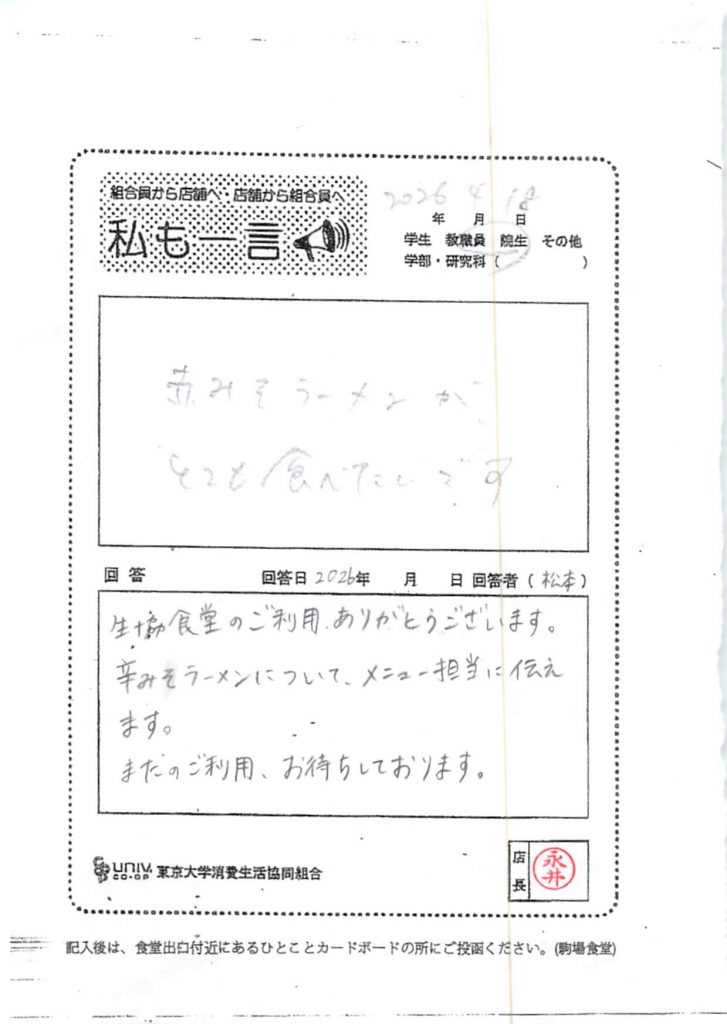 組合員から店舗へ・店舗から組合員へ
私も一言
2026 4 18
年 月 日
学生 教職員 院生 その他
学部・研究科 ( )
赤みそラーメンが、
とても食べたいです
回答 回答日 2026年 月 日 回答者 (松本)
生協食堂のご利用、ありがとうございます。
辛みそラーメンについて、メニュー担当に伝え
ます。
またのご利用、お待ちしております。
UNIV. CO-OP 東京大学消費生活協同組合
店長 永井
記入後は、食堂出口付近にあるひとことカードボードの所にご投函ください。(駒場食堂)